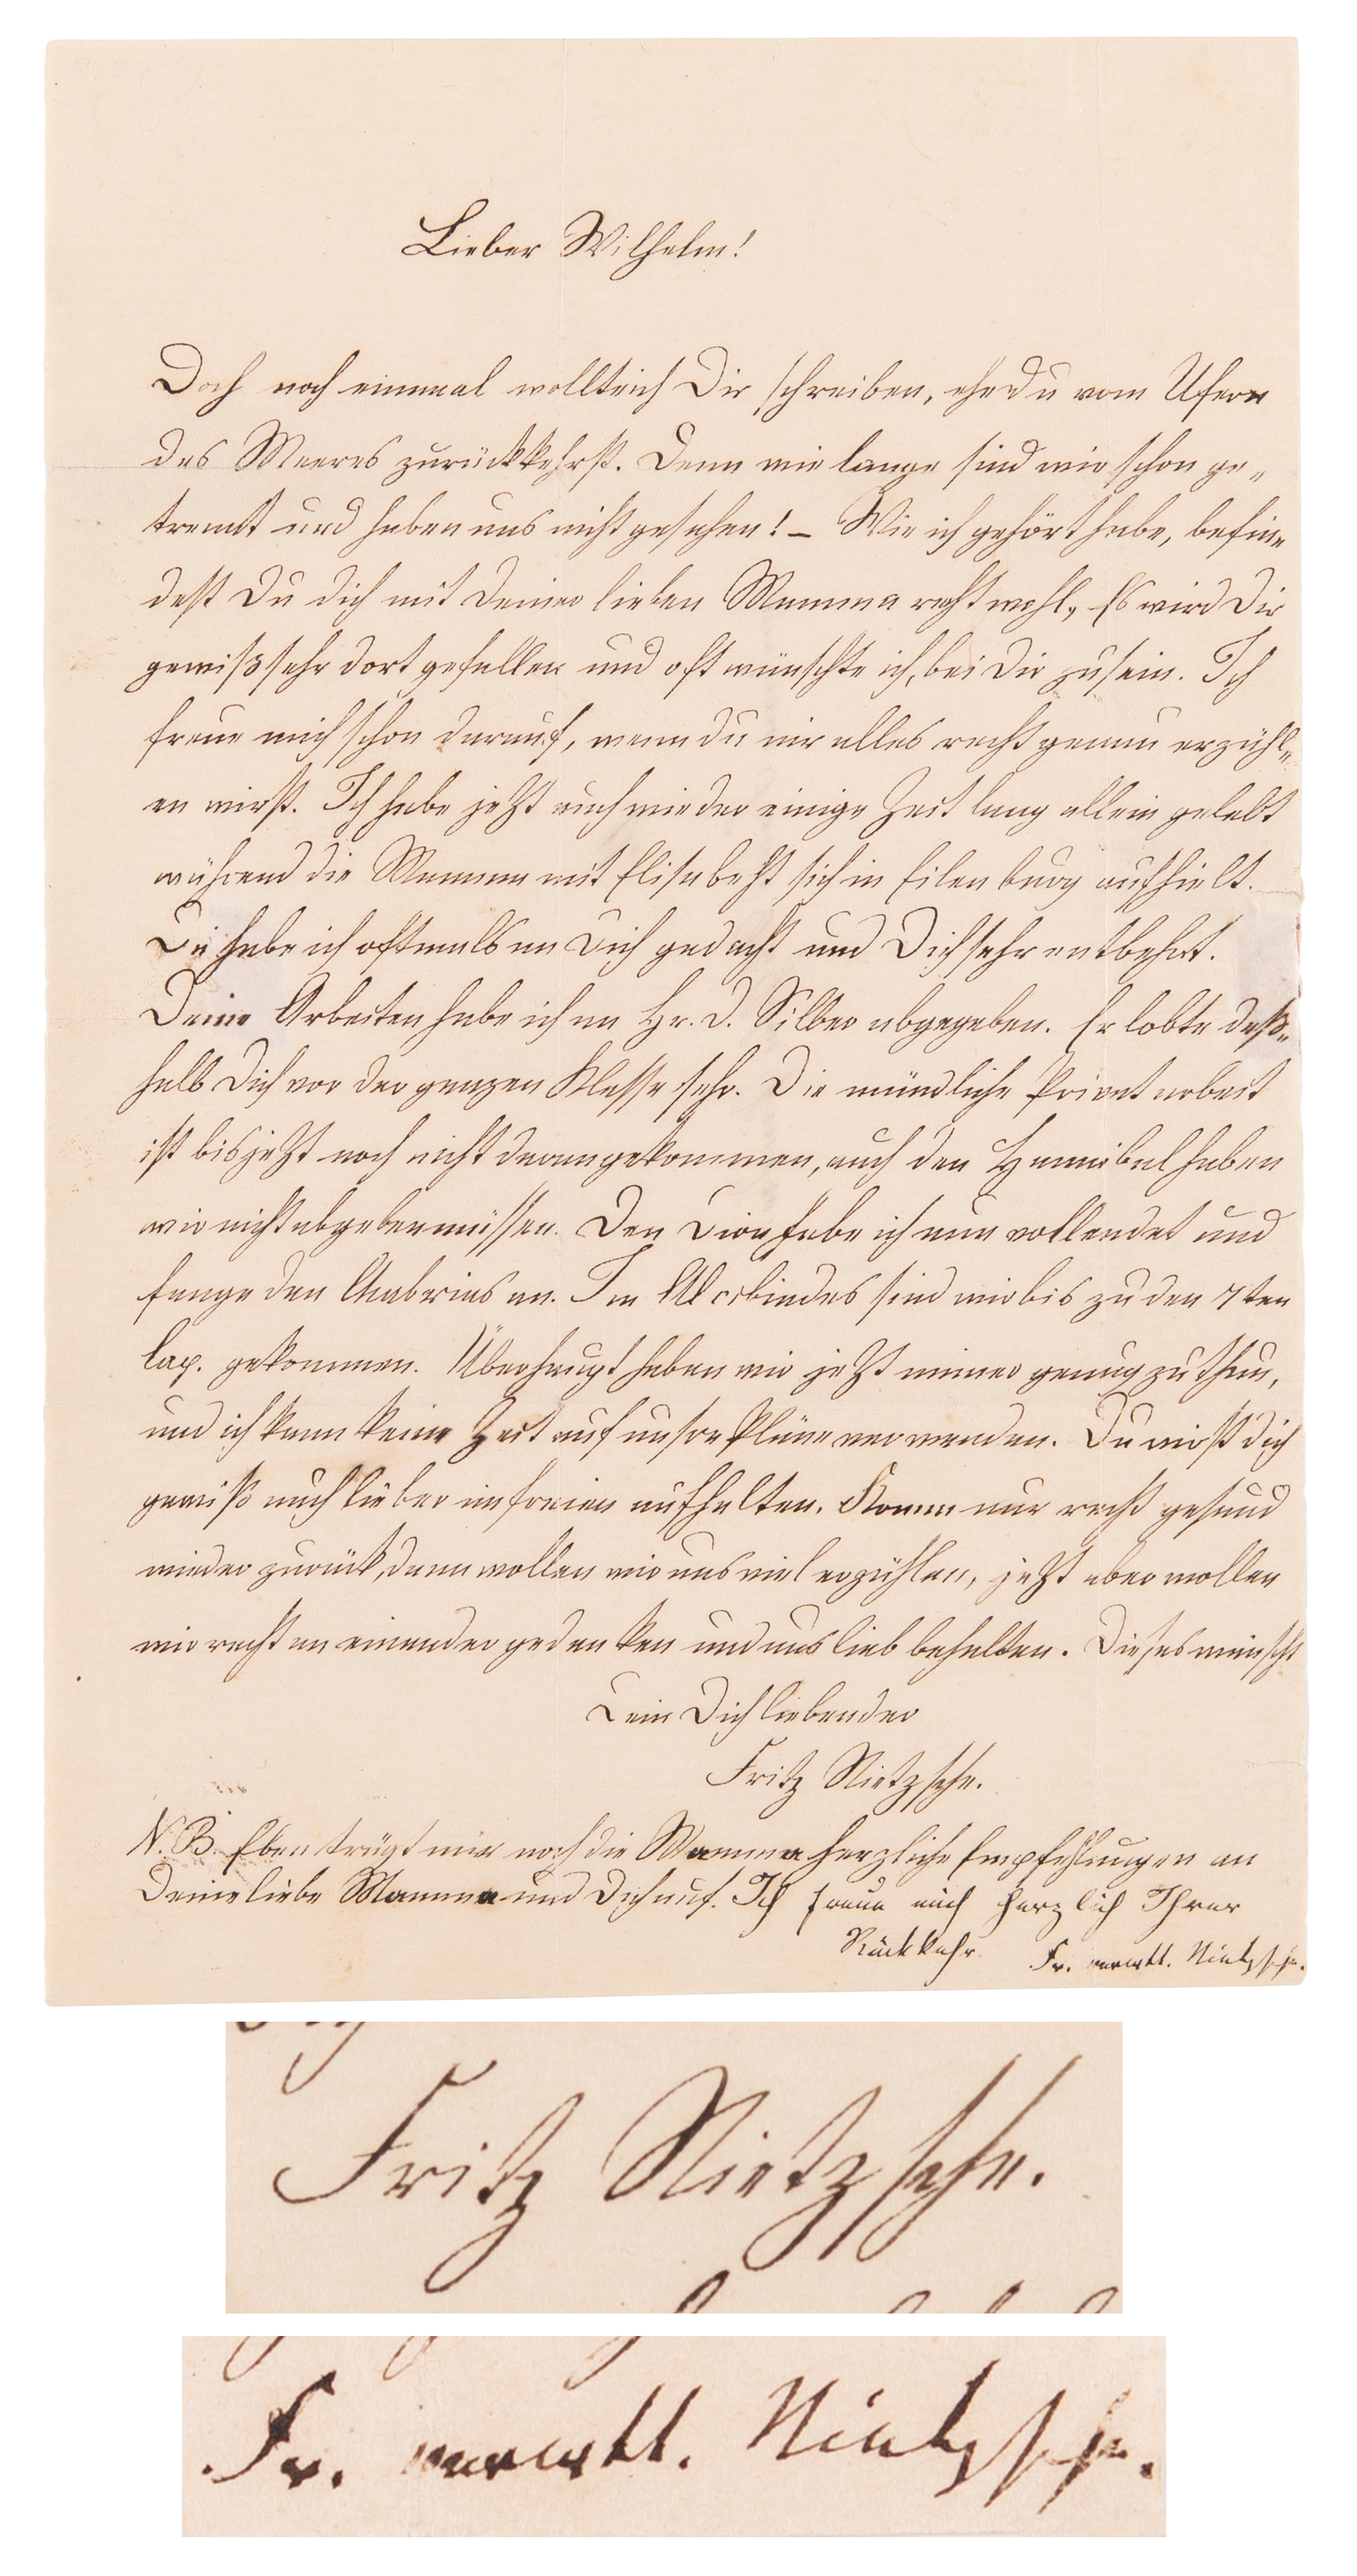 Lieber Wilhelm!
Doch noch einmal wollte ich Dir schreiben, ehe Du vom Ufern
des Meeres zurückkehrst. Denn wie lange sind wir schon ge-
trennt und haben uns nicht gesehen! – Wie ich gehört habe, befin-
dest Du dich mit Deiner lieben Mamma recht wohl, Es wird Dir
gewiß sehr dort gefallen und oft wünschte ich, bei Dir zu sein. Ich
freue mich schon darauf, wenn du mir alles recht genau erzähl-
en wirst. Ich habe jetzt auch wieder einige Zeit lang allein gelebt
während die Mamma mit Elisabeht sich in Eilenburg aufhielt.
Da habe ich oftmals an Dich gedacht und Dich sehr entbehrt.
Deine Arbeiten habe ich an Hr. D. Silber abgegeben. Er lobte deß-
halb Dich vor der ganzen Klasse sehr. Die mündliche Privatarbeit
ist bis jetzt noch nicht darangekommen, auch den Hannibal haben
wir nicht abgeben müssen. Den Dion habe ich nun vollendet und
fange den Chabrias an. Im Alcibiades sind wir bis zu den 7ten
Cap. gekommen. Überhaupt haben wir jetzt immer genug zu thun,
und ich kann keine Zeit auf unsre Pläne verwenden. Du wirst dich
gewiß auch lieber im freien aufhalten. Komm nur recht gesund
wieder zurück, dann wollen wir uns viel erzählen, jetzt aber wollen
wir recht an einander gedenken und uns lieb behalten. Dieses wünscht
Dein Dich liebender
Fritz Nietzsche.
N. B. Eben trägt mir noch die Mamma herzliche Empfehlungen an
Deine liebe Mamma und Dich auf. Ich freue mich herzlich Ihrer
Rückkehr. Fr. verwtt. Nietzsche.
Fritz Nietzsche.
Fr. verwtt. Nietzsche.